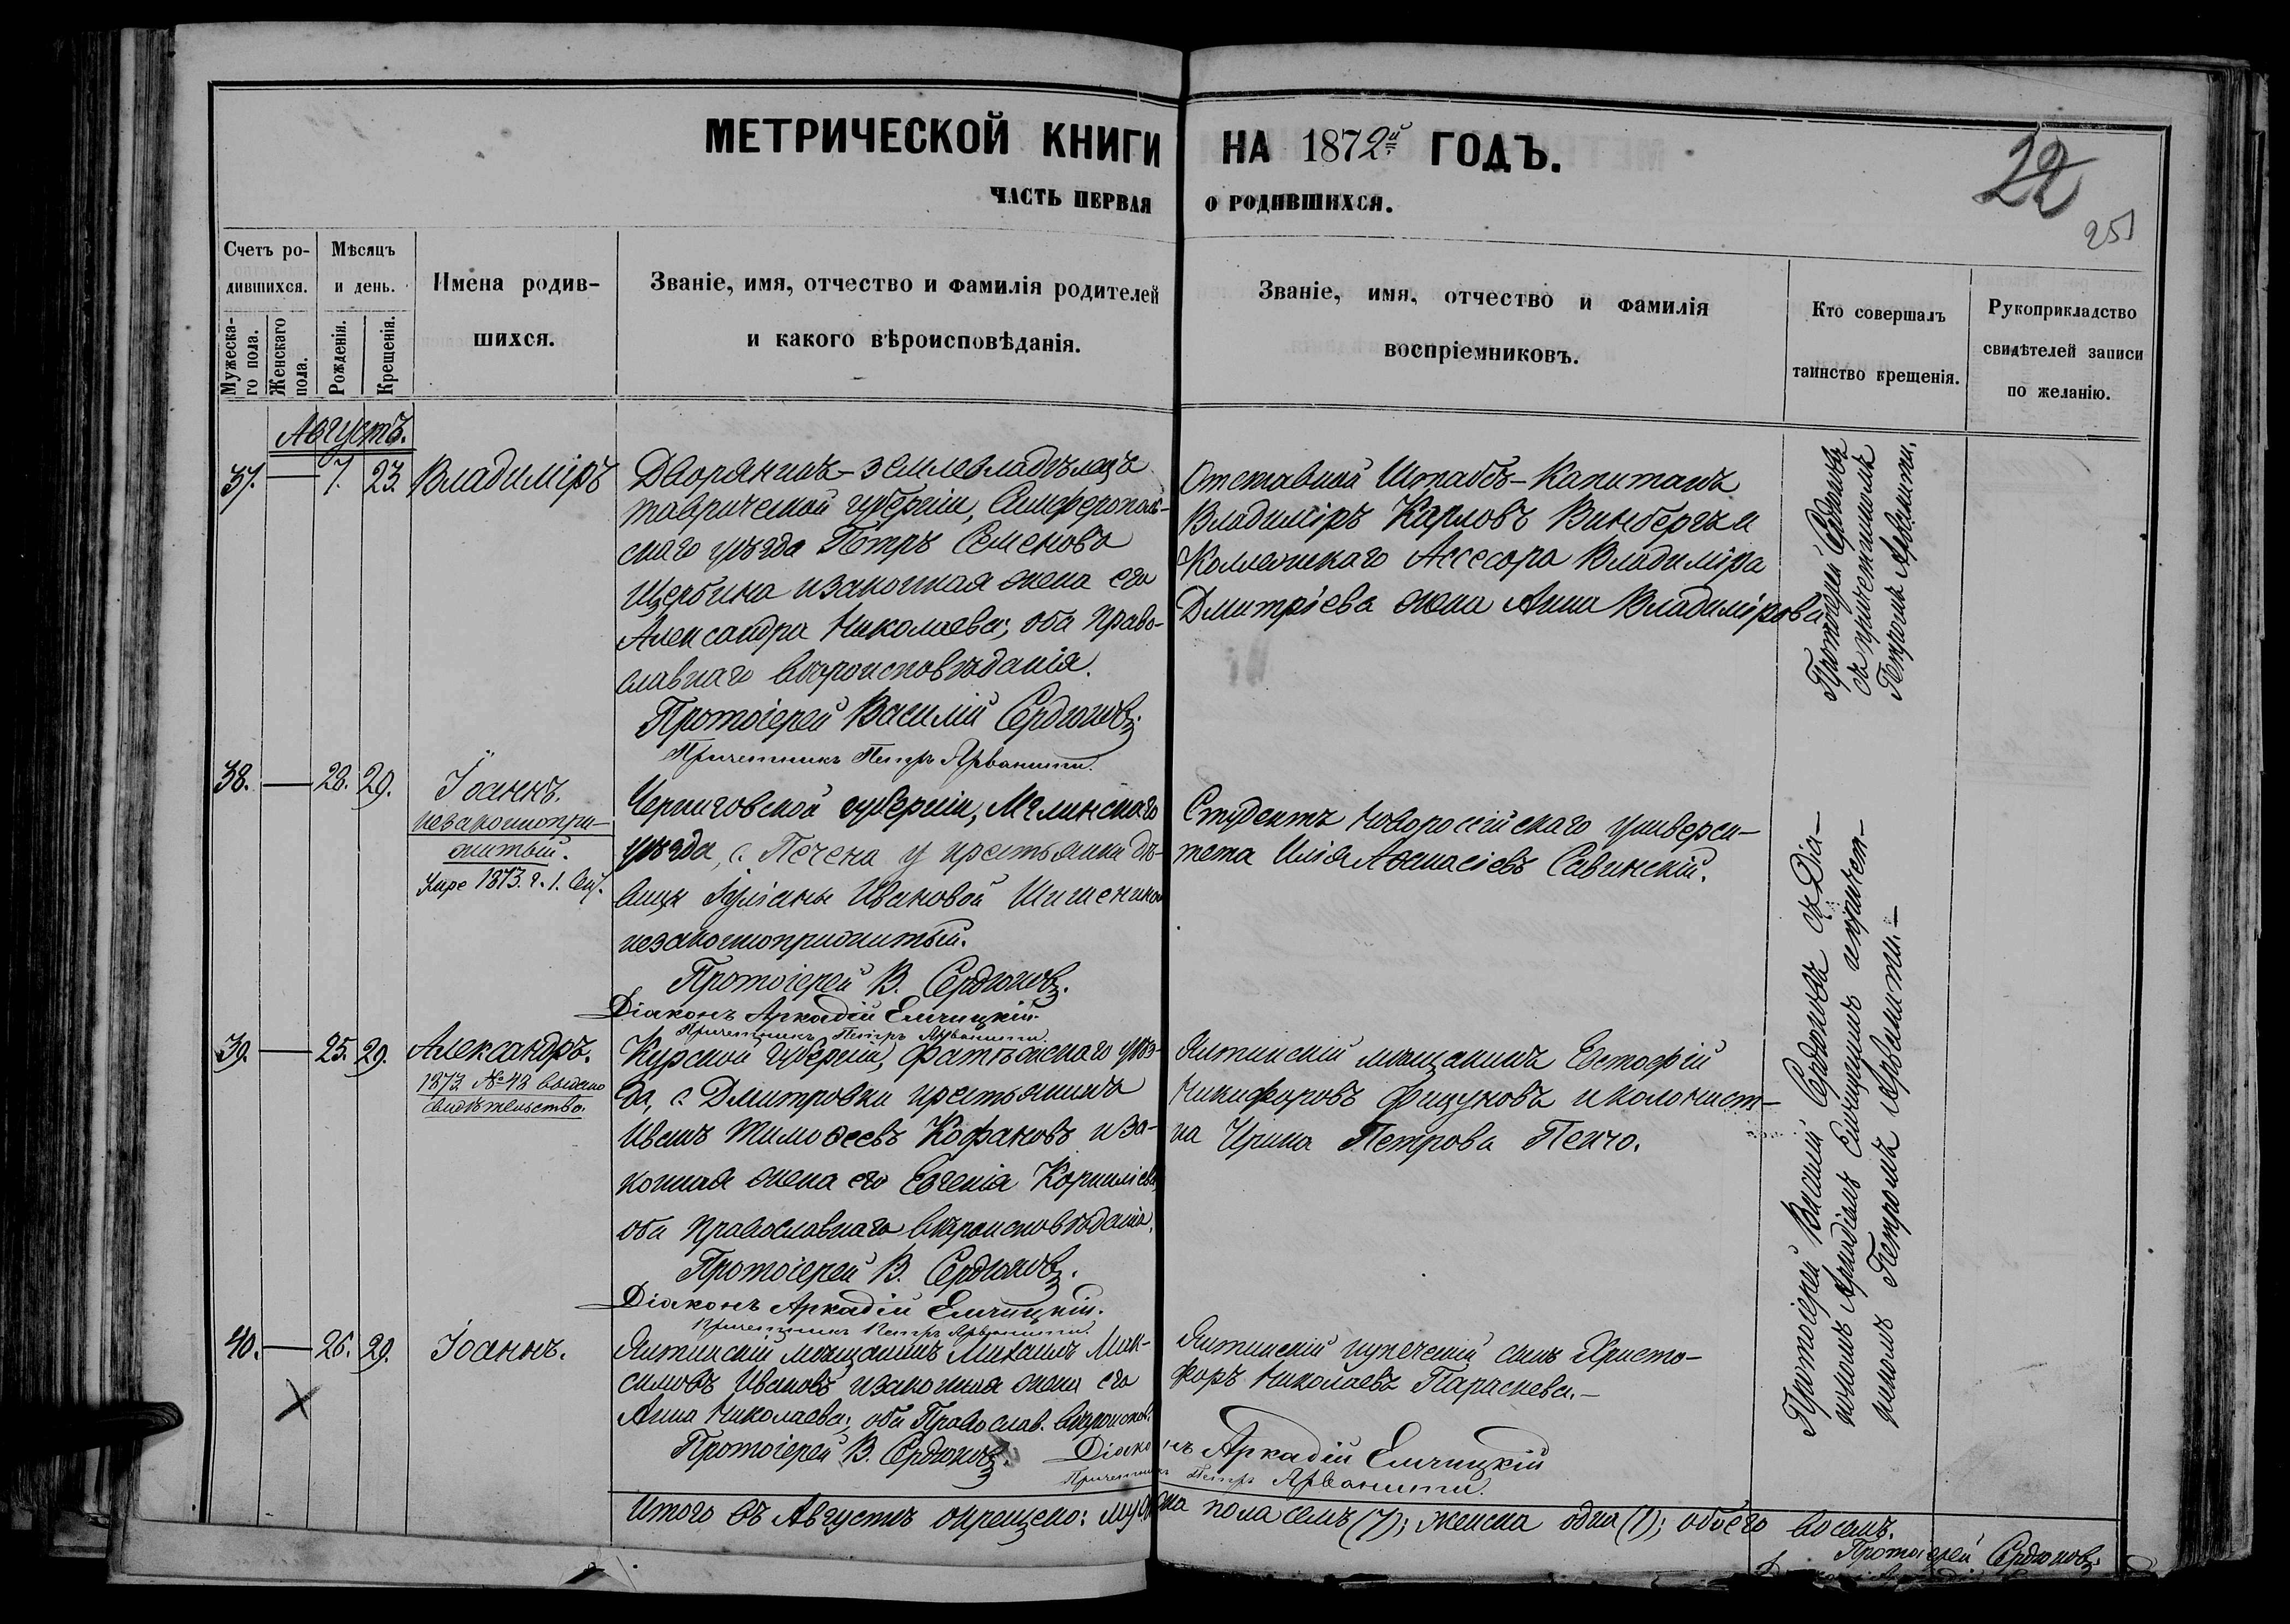 МЕТРИЧЕСКОЙ КНИГИ НА 1872й ГОДЪ.
ЧАСТЬ ПЕРВАЯ О РОДИВШИХСЯ.
22
251
Счетъ ро-
дившихся.
Мужеска-
го пола.
Женскаго
пола.
Мѣсяцъ
и день.
Рожденія.
Крещенія.
Имена родив-
шихся.
Званіе, имя, отчество и фамилія родителей
и какого вѣроисповѣданія.
Званіе, имя, отчество и фамилія
воспріемниковъ.
Кто совершалъ
таинство крещенія.
Рукоприкладство
свидѣтелей записи
по желанію.
Августъ.
37. — 7. 23. Владиміръ
Дворянинъ-землевладѣлецъ
таврической губерніи, Симферополь-
скаго уѣзда Петръ Семеновъ
Щербина и законная жена его
Александра Николаева; оба право-
славнаго вѣроисповѣданія.
Протоіерей Василій Сердюковъ.
Причетникъ Петръ Арванити.
Отставной Штабсъ-Капитанъ
Владиміръ Карловъ Винбергъ и
Коллежскаго Ассесора Владиміра
Дмитріева жена Анна Владимірова
Протоіерей Сердюковъ
съ причетникомъ
Петромъ Арванити.
38. — 28. 29. Іоаннъ.
незаконнопри-
житый.
Умре 1873. г. 1. Сен.
Черниговской губерніи, Мглинскаго
уѣзда, с. Печена у крестьянки дѣ-
вицы Іуліаны Ивановой
незаконноприжитый.
Протоіерей В. Сердюковъ.
Діаконъ Аркадій Елчицкій.
Причетникъ Петръ Арванити.
Студентъ Новороссійскаго универси-
тета Илія Аѳанасіевъ Савинскій.
39. — 25. 29. Александръ.
1872 № 48 выдано
свидѣтельство.
Курской губерніи, Фатѣжскаго уѣз-
да, с. Дмитровки крестьянинъ
Иванъ Тимоѳеевъ Кофановъ и за-
конная жена его Евгенія Корниліева
оба православнаго вѣроисповѣданія.
Протоіерей В. Сердюковъ.
Діаконъ Аркадій Елчицкій.
Причетникъ Петръ Арванити.
Ялтинскій мѣщанинъ Евстафій
Никифоровъ Фицуновъ и колонист-
ка Ирина Петрова Пенчо.
40. — 26. 29. Іоаннъ.
Ялтинскій мѣщанинъ Михаилъ Мак-
симовъ Ивановъ и законная жена его
Анна Николаева; оба Православ. вѣроисповѣ.
Протоіерей В. Сердюковъ. Діаконъ Аркадій Елчицкій
Причетникъ Петръ Арванити.
Ялтинскій купеческій сынъ Христо-
форъ Николаевъ Параскева.—
Протоіерей Василій Сердюковъ съ Діа-
кономъ Аркадіемъ Елчицкимъ и причет-
никомъ Петромъ Арванити.—
Итого въ Августѣ окрещено: мужска пола семь (7); женска одна (1); обоего восемь.
Протоіерей Сердюковъ.